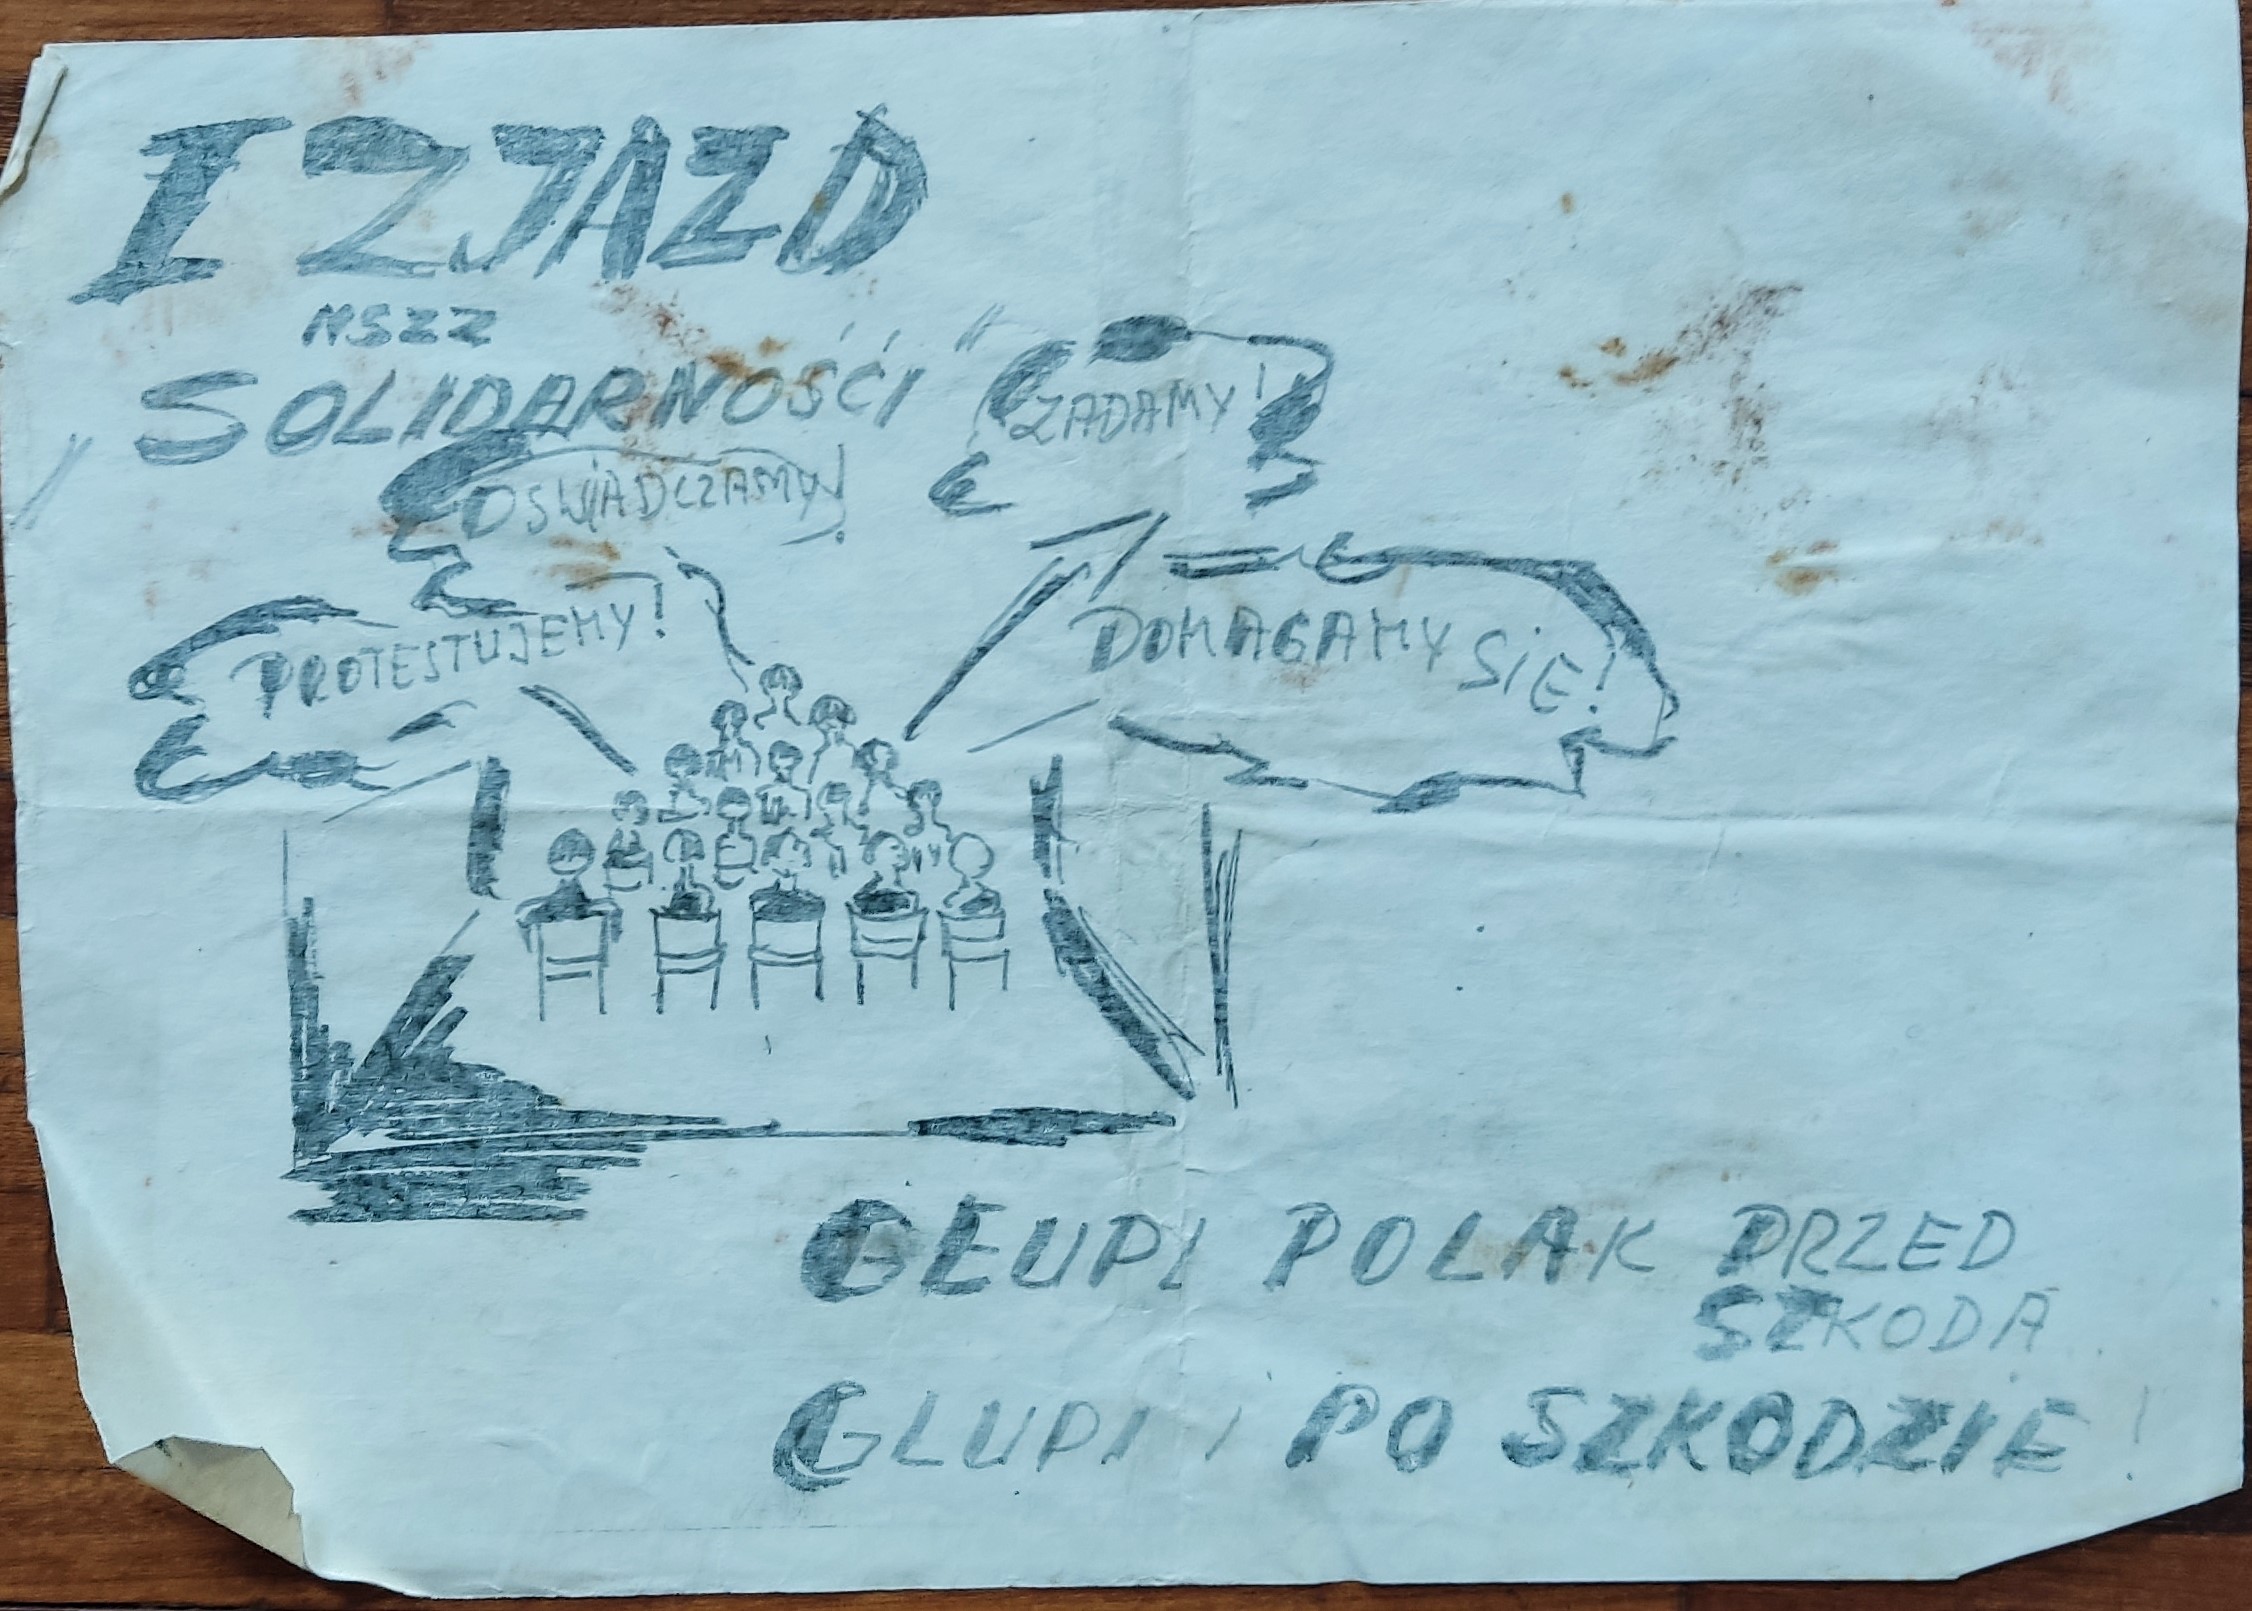 I ZJAZD
NSZZ
„SOLIDARNOŚĆI"
OSWIADCZAMY!
ŻADAMY!
PROTESTUJEMY!
DOMAGAMY SIE!
GŁUPI POLAK PRZED
SZKODĄ
GLUPI I PO SZKODZIE!